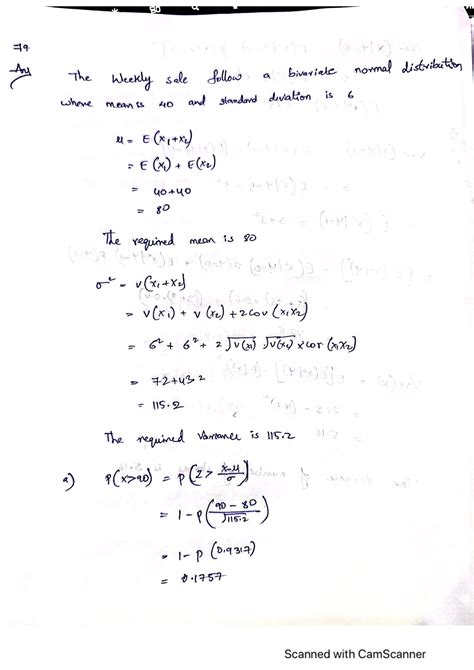 79
Ans
The Weekly sale follow a bivariate normal distribution
where mean is 40 and standard deviation is 6
μ = E(x₁+x₂)
= E(x₁) + E(x₂)
= 40+40
= 80
The required mean is 80
σ² = V(x₁+x₂)
= V(x₁) + V(x₂) + 2cov(x₁x₂)
= 6² + 6² + 2√V(x₁) √V(x₂) × cor(x₁x₂)
= 72+43.2
= 115.2
The required variance is 115.2
a) P(x>90) = P[Z > x-μ/σ]
= 1-P(90-80/√115.2)
= 1-P(0.9317)
= 0.1757
Scanned with CamScanner